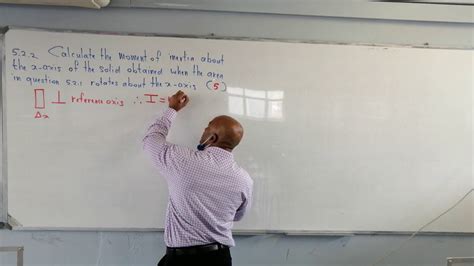 5.2.2 Calculate the moment of inertia about
the x-axis of the solid obtained when the area
in question 5.2.1 rotates about the x-axis (5)
⊥ reference axis ∴ I =
Δx